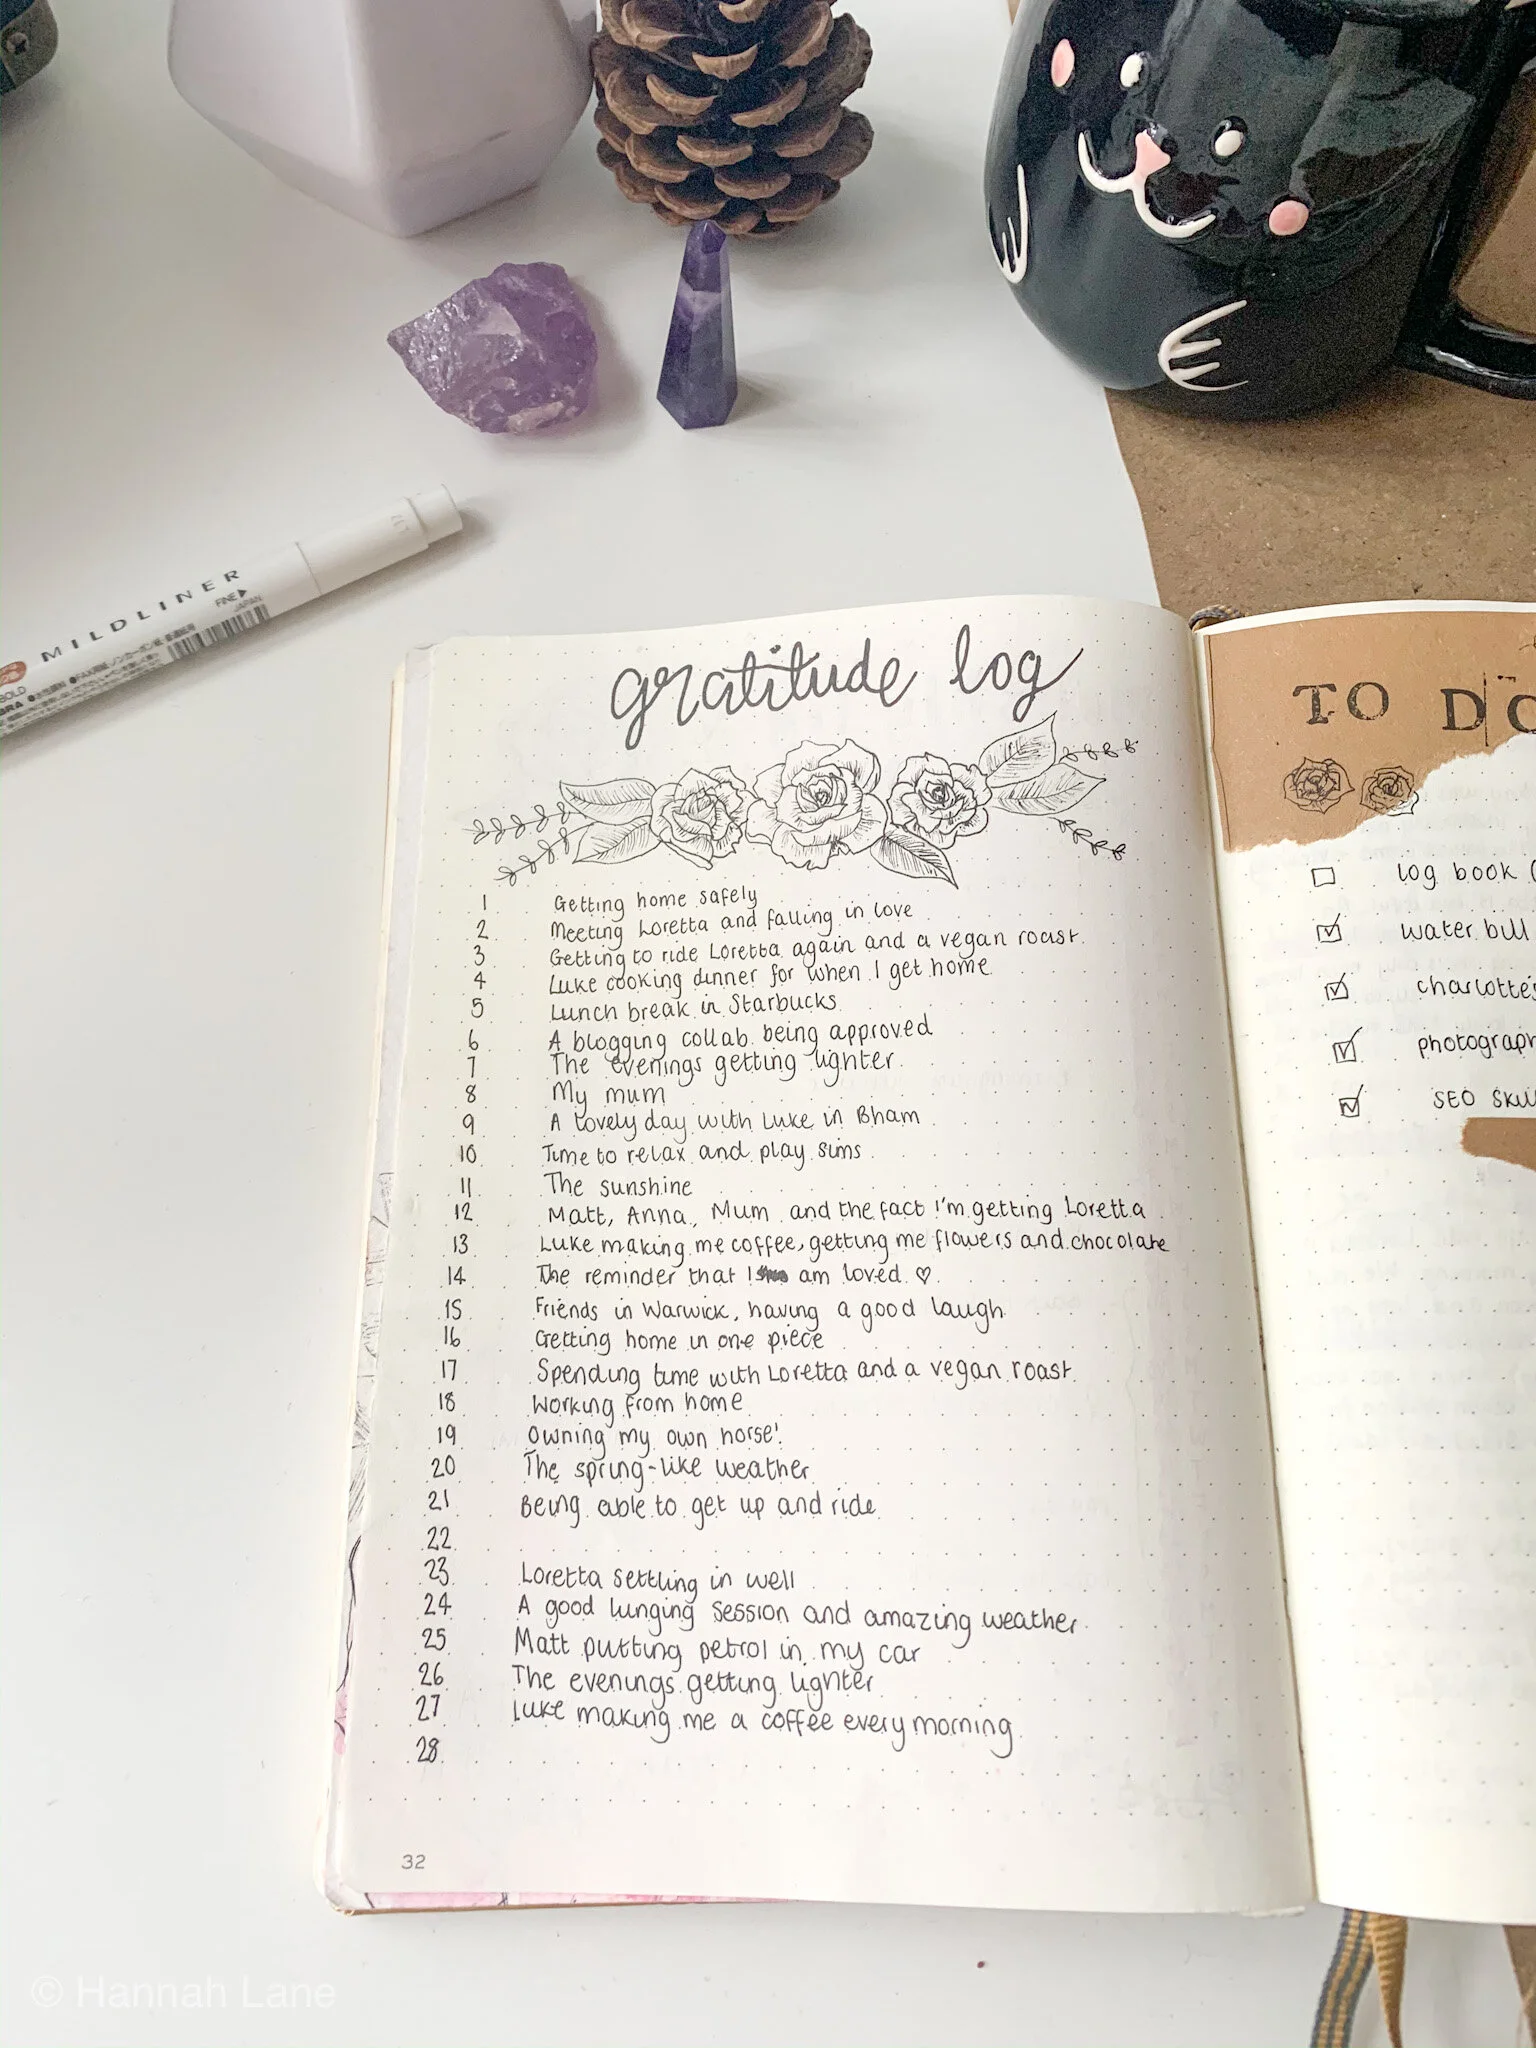 MILDLINER
FINE▶
JAPAN
BOLD
gratitude log
1 Getting home safely
2 Meeting Loretta and falling in love
3 Getting to ride Loretta again and a vegan roast.
4 Luke cooking dinner for when I get home
5 Lunch break in Starbucks
6 A blogging collab being approved
7 The evenings getting lighter
8 My mum
9 A lovely day with Luke in Bham
10 Time to relax and play sims
11 The sunshine
12 Matt, Anna, Mum and the fact I'm getting Loretta
13 Luke making me coffee, getting me flowers and chocolate
14 The reminder that I am loved ♡
15 Friends in Warwick, having a good laugh
16 Getting home in one piece
17 Spending time with Loretta and a vegan roast
18 Working from home
19 Owning my own horse!
20 The spring-like weather
21 Being able to get up and ride
22
23 Loretta settling in well
24 A good lunging session and amazing weather
25 Matt putting petrol in my car
26 The evenings getting lighter
27 Luke making me a coffee every morning
28
32
TO DO
log book (
water bill
charlotte's
photograph
SEO Skill
© Hannah Lane